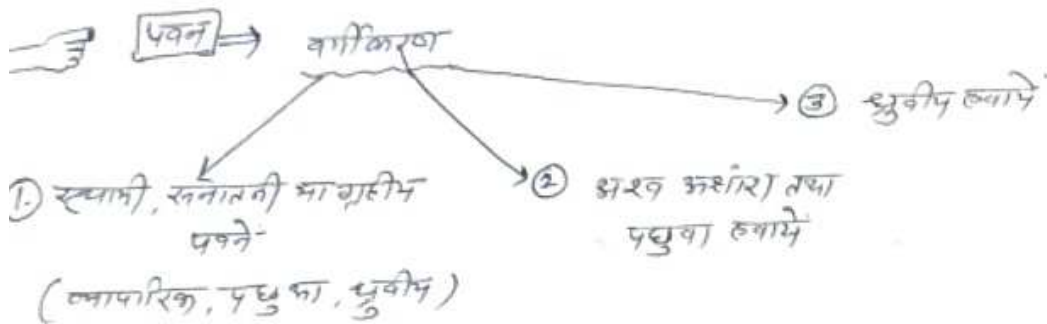 पवन ⇒ वर्गीकरण
③ ध्रुवीय हवायें
① स्थायी, सनातनी या ग्रहीय
पवनें
(व्यापारिक, पछुआ, ध्रुवीय)
② अश्व अक्षांश तथा
पछुवा हवायें